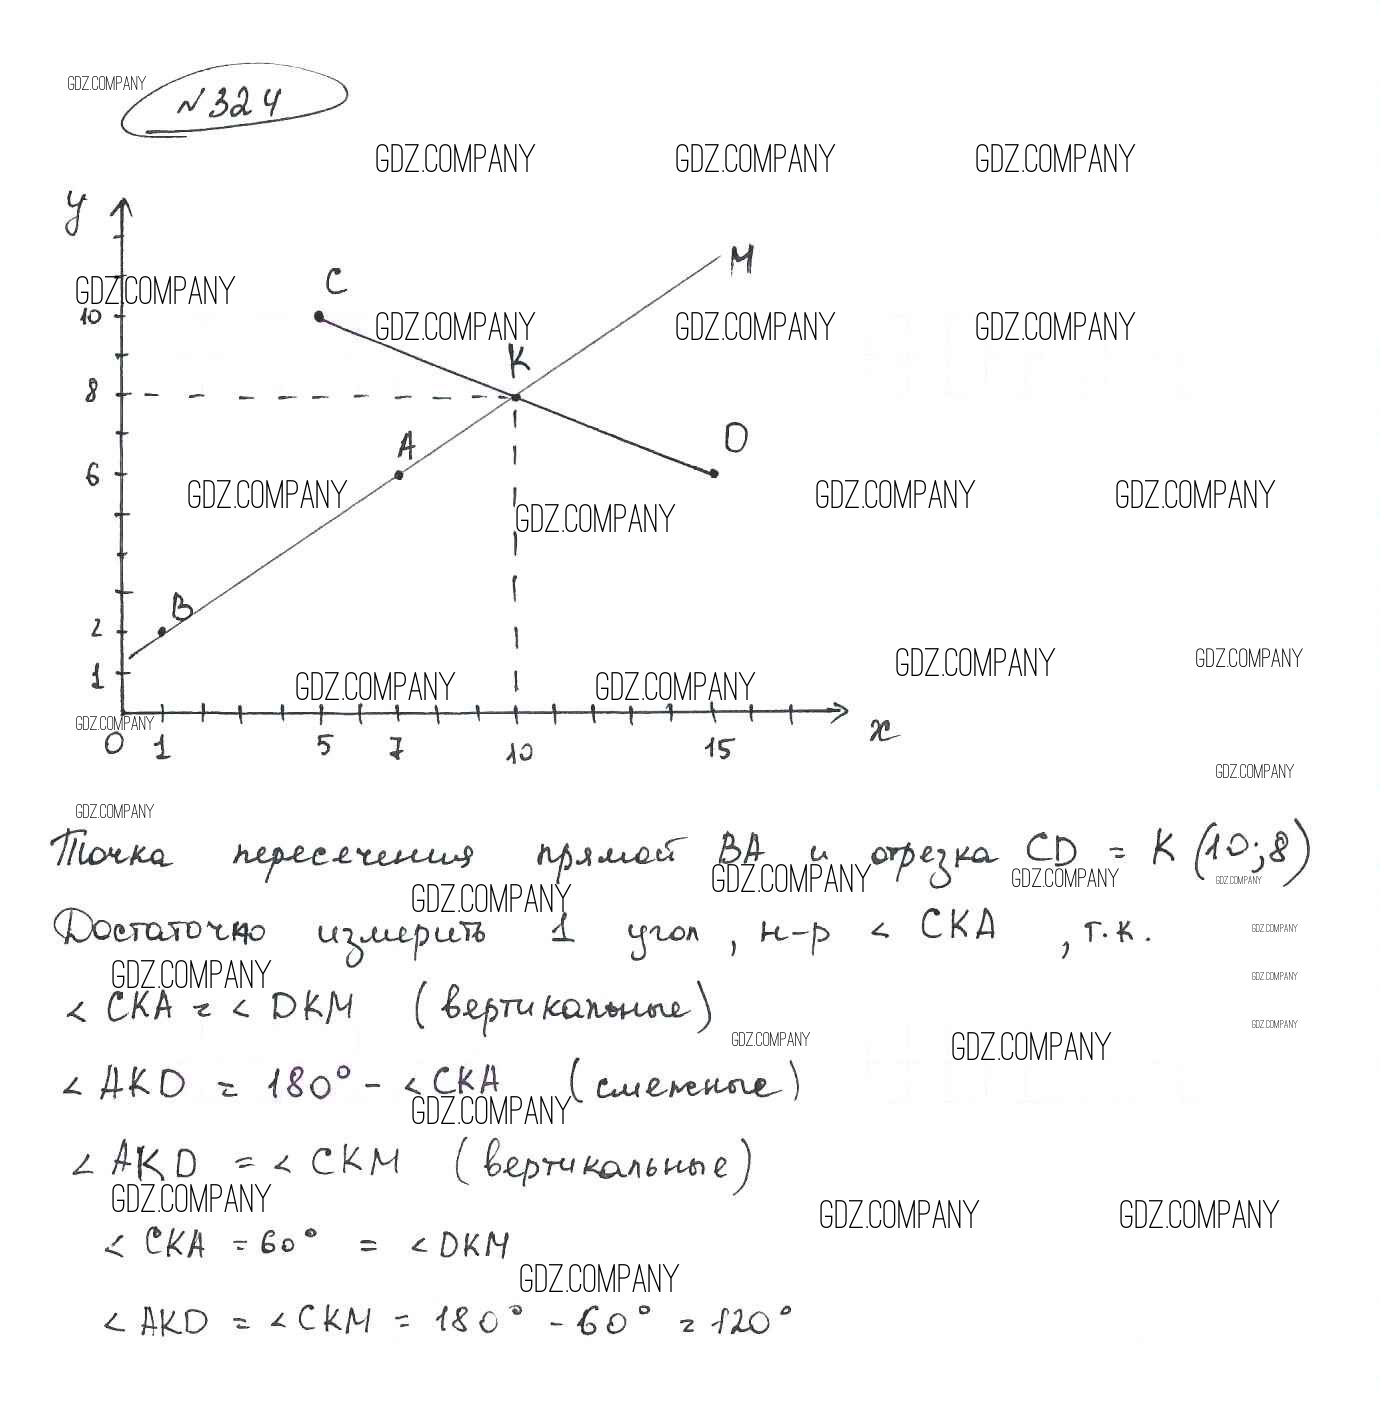 GDZ.COMPANY
№324
GDZ.COMPANY GDZ.COMPANY GDZ.COMPANY
y
M
C
GDZ.COMPANY
10
GDZ.COMPANY GDZ.COMPANY GDZ.COMPANY
K
8
A
D
6
GDZ.COMPANY GDZ.COMPANY GDZ.COMPANY GDZ.COMPANY
B
2
1
GDZ.COMPANY GDZ.COMPANY GDZ.COMPANY GDZ.COMPANY
GDZ.COMPANY
x
0 1 5 7 10 15
GDZ.COMPANY
GDZ.COMPANY
Точка пересечения прямой BA и отрезка CD = K (10;8)
GDZ.COMPANY GDZ.COMPANY GDZ.COMPANY GDZ.COMPANY
Достаточно измерить 1 угол, н-р < CKA , т.к.
GDZ.COMPANY
GDZ.COMPANY GDZ.COMPANY
< CKA = < DKM (вертикальные)
GDZ.COMPANY
GDZ.COMPANY GDZ.COMPANY
< AKD = 180° - < CKA (смежные)
GDZ.COMPANY
< AKD = < CKM (вертикальные)
GDZ.COMPANY GDZ.COMPANY GDZ.COMPANY
< CKA = 60° = < DKM
GDZ.COMPANY
< AKD = < CKM = 180° - 60° = 120°